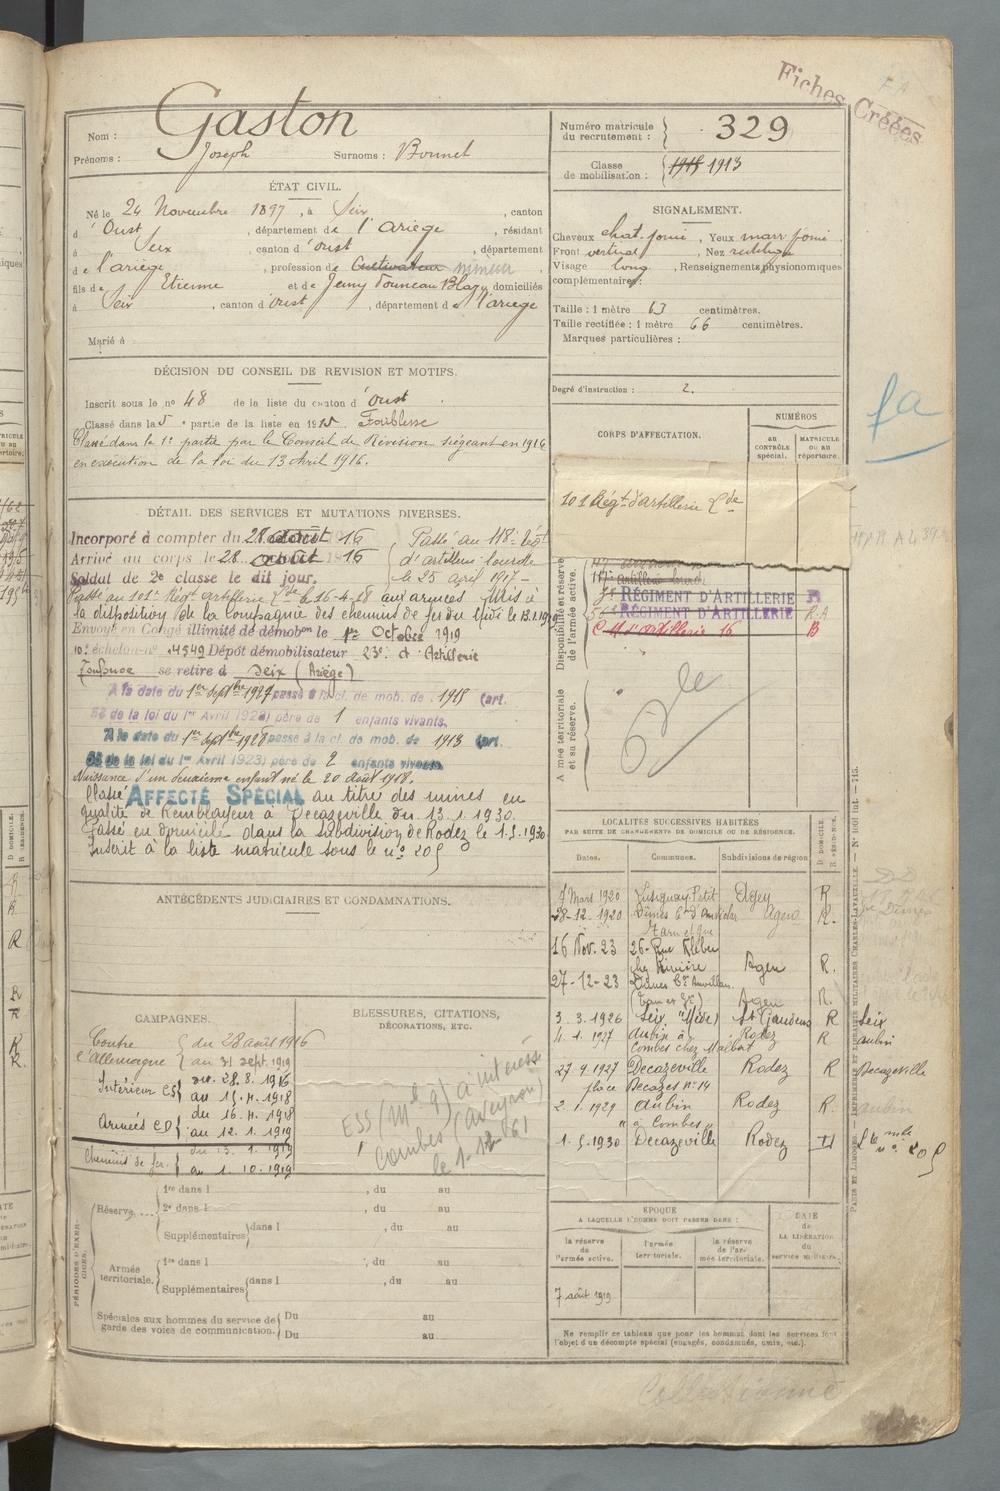 Fiches Créées
Nom : Gaston
Prénoms : Joseph Surnoms : Bonnet
Numéro matricule du recrutement : 329
Classe de mobilisation : 1918 1913
ÉTAT CIVIL.
Né le 24 Novembre 1897, à Seix, canton
d'Oust, département de l'Ariège, résidant
à Seix, canton d'Oust, département
de l'ariège, profession de Cultivateur mineur
fils de Etienne et de Jeny Founeau Blazy domiciliés
à Seix, canton d'oust, département de l'ariège
Marié à
SIGNALEMENT.
Cheveux chat. foncé, Yeux marr foncé
Front vertical, Nez rectiligne
Visage long, Renseignements physionomiques
complémentaires :
Taille : 1 mètre 63 centimètres.
Taille rectifiée : 1 mètre 66 centimètres.
Marques particulières :
Degré d'instruction : 2.
DÉCISION DU CONSEIL DE REVISION ET MOTIFS.
Inscrit sous le nº 48 de la liste du canton d'Oust.
Classé dans la 5e partie de la liste en 1915 Faiblesse
Classé dans la 1e partie par le Conseil de Révision siégeant en 1916
en exécution de la loi du 13 Avril 1916.
CORPS D'AFFECTATION.
NUMÉROS
au CONTRÔLE spécial.
MATRICULE ou au répertoire.
101 Régt d'artillerie Lde
RÉGIMENT D'ARTILLERIE
RÉGIMENT D'ARTILLERIE
C.M. d'artillerie 16 B
Disponibilité et réserve de l'armée active.
Armée territoriale et sa réserve.
fa
DÉTAIL DES SERVICES ET MUTATIONS DIVERSES.
Incorporé à compter du 28 août 16 Passé au 118e Régt
Arrivé au corps le 28 août 16 d'artillerie lourde
Soldat de 2e classe le dit jour. le 25 avril 1917 -
Passé au 101e Régt artillerie Lde le 16-4-18 aux armées Mis à
la disposition de la Compagnie des chemins de fer du Midi le 13.1.1919
Envoyé en Congé illimité de démobon le 1er Octobre 1919
10e échelon nº 4549 Dépôt démobilisateur 23e d'Artillerie
Toulouse se retire à Seix (Ariège)
A la date du 1er septbre 1927 passé à la cl. de mob. de 1915 (art.
58 de la loi du 1er Avril 1923) père de 1 enfants vivants.
A la date du 1er septbre 1928 passé à la cl. de mob. de 1913 (art.
58 de la loi du 1er Avril 1923) père de 2 enfants vivants
Naissance d'un deuxième enfant né le 20 août 1928.
Classé AFFECTÉ SPÉCIAL au titre des mines en
qualité de Remblayeur à Decazeville du 13.1.1930.
Passé en domicile dans la subdivision de Rodez le 1.5.1930
Inscrit à la liste matricule sous le nº 205
ANTÉCÉDENTS JUDICIAIRES ET CONDAMNATIONS.
LOCALITÉS SUCCESSIVES HABITÉES
PAR SUITE DE CHANGEMENTS DE DOMICILE OU DE RÉSIDENCE.
Dates. Communes. Subdivisions de région D DOMICILE. R RÉSIDENCE.
7 Mars 1920 Lusignan-Petit Agen R
28-12-1920 Agen R.
16 Nov. 23 26 Rue Kléber
chez Rivière Agen R.
27-12-23 Agen R.
3-3-1926 Seix, "Mède" St Gaudens R Seix
4.1.1927 Aubin à Rodez R aubin
Combes chez Malbat
27.9.1927 Decazeville Rodez R Decazeville
place Decazes nº 14
2.1.1929 aubin Rodez R. aubin
"à Combes"
1.5.1930 Decazeville Rodez D Lte mle nº 205
CAMPAGNES.
Contre l'Allemagne du 28 août 1916
au 31 sept. 1919
Intérieur CS du 28.8.1916
au 15.4.1918
Armées CD du 16.4.1918
au 12.1.1919
Chemins de fer. du 13.1.1919
au 1.10.1919
BLESSURES, CITATIONS,
DÉCORATIONS, ETC.
ESS (Mle 9) à intéressé
Combes (aveyron)
le 1-12-61
PÉRIODES D'EXERCICES.
Réserve.... 1re dans l , du au
2e dans l , du au
Supplémentaires dans l , du au
Armée territoriale. 1re dans l , du au
Supplémentaires dans l , du au
Spéciales aux hommes du service de garde des voies de communication. Du au
Du au
ÉPOQUE
A LAQUELLE L'HOMME DOIT PASSER DANS :
la réserve de l'armée active.
l'armée territoriale.
la réserve de l'armée territoriale.
DATE de LA LIBÉRATION du service militaire.
7 août 1919
Ne remplir ce tableau que pour les hommes dont les services font
l'objet d'un décompte spécial (engagés, condamnés, omis, etc.).
PARIS ET LIMOGES. — IMPRIMERIE ET LIBRAIRIE MILITAIRES CHARLES-LAVAUZELLE.
Collationné